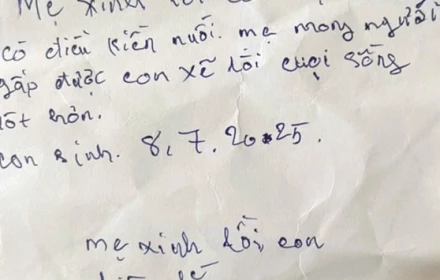 Mẹ xinh lỗi
có điều kiện nuôi. mẹ mong người
gấp được con xẽ đổi cuọi sống
tốt hơn.
con sinh. 8, 7. 2025.
mẹ xinh lỗi con